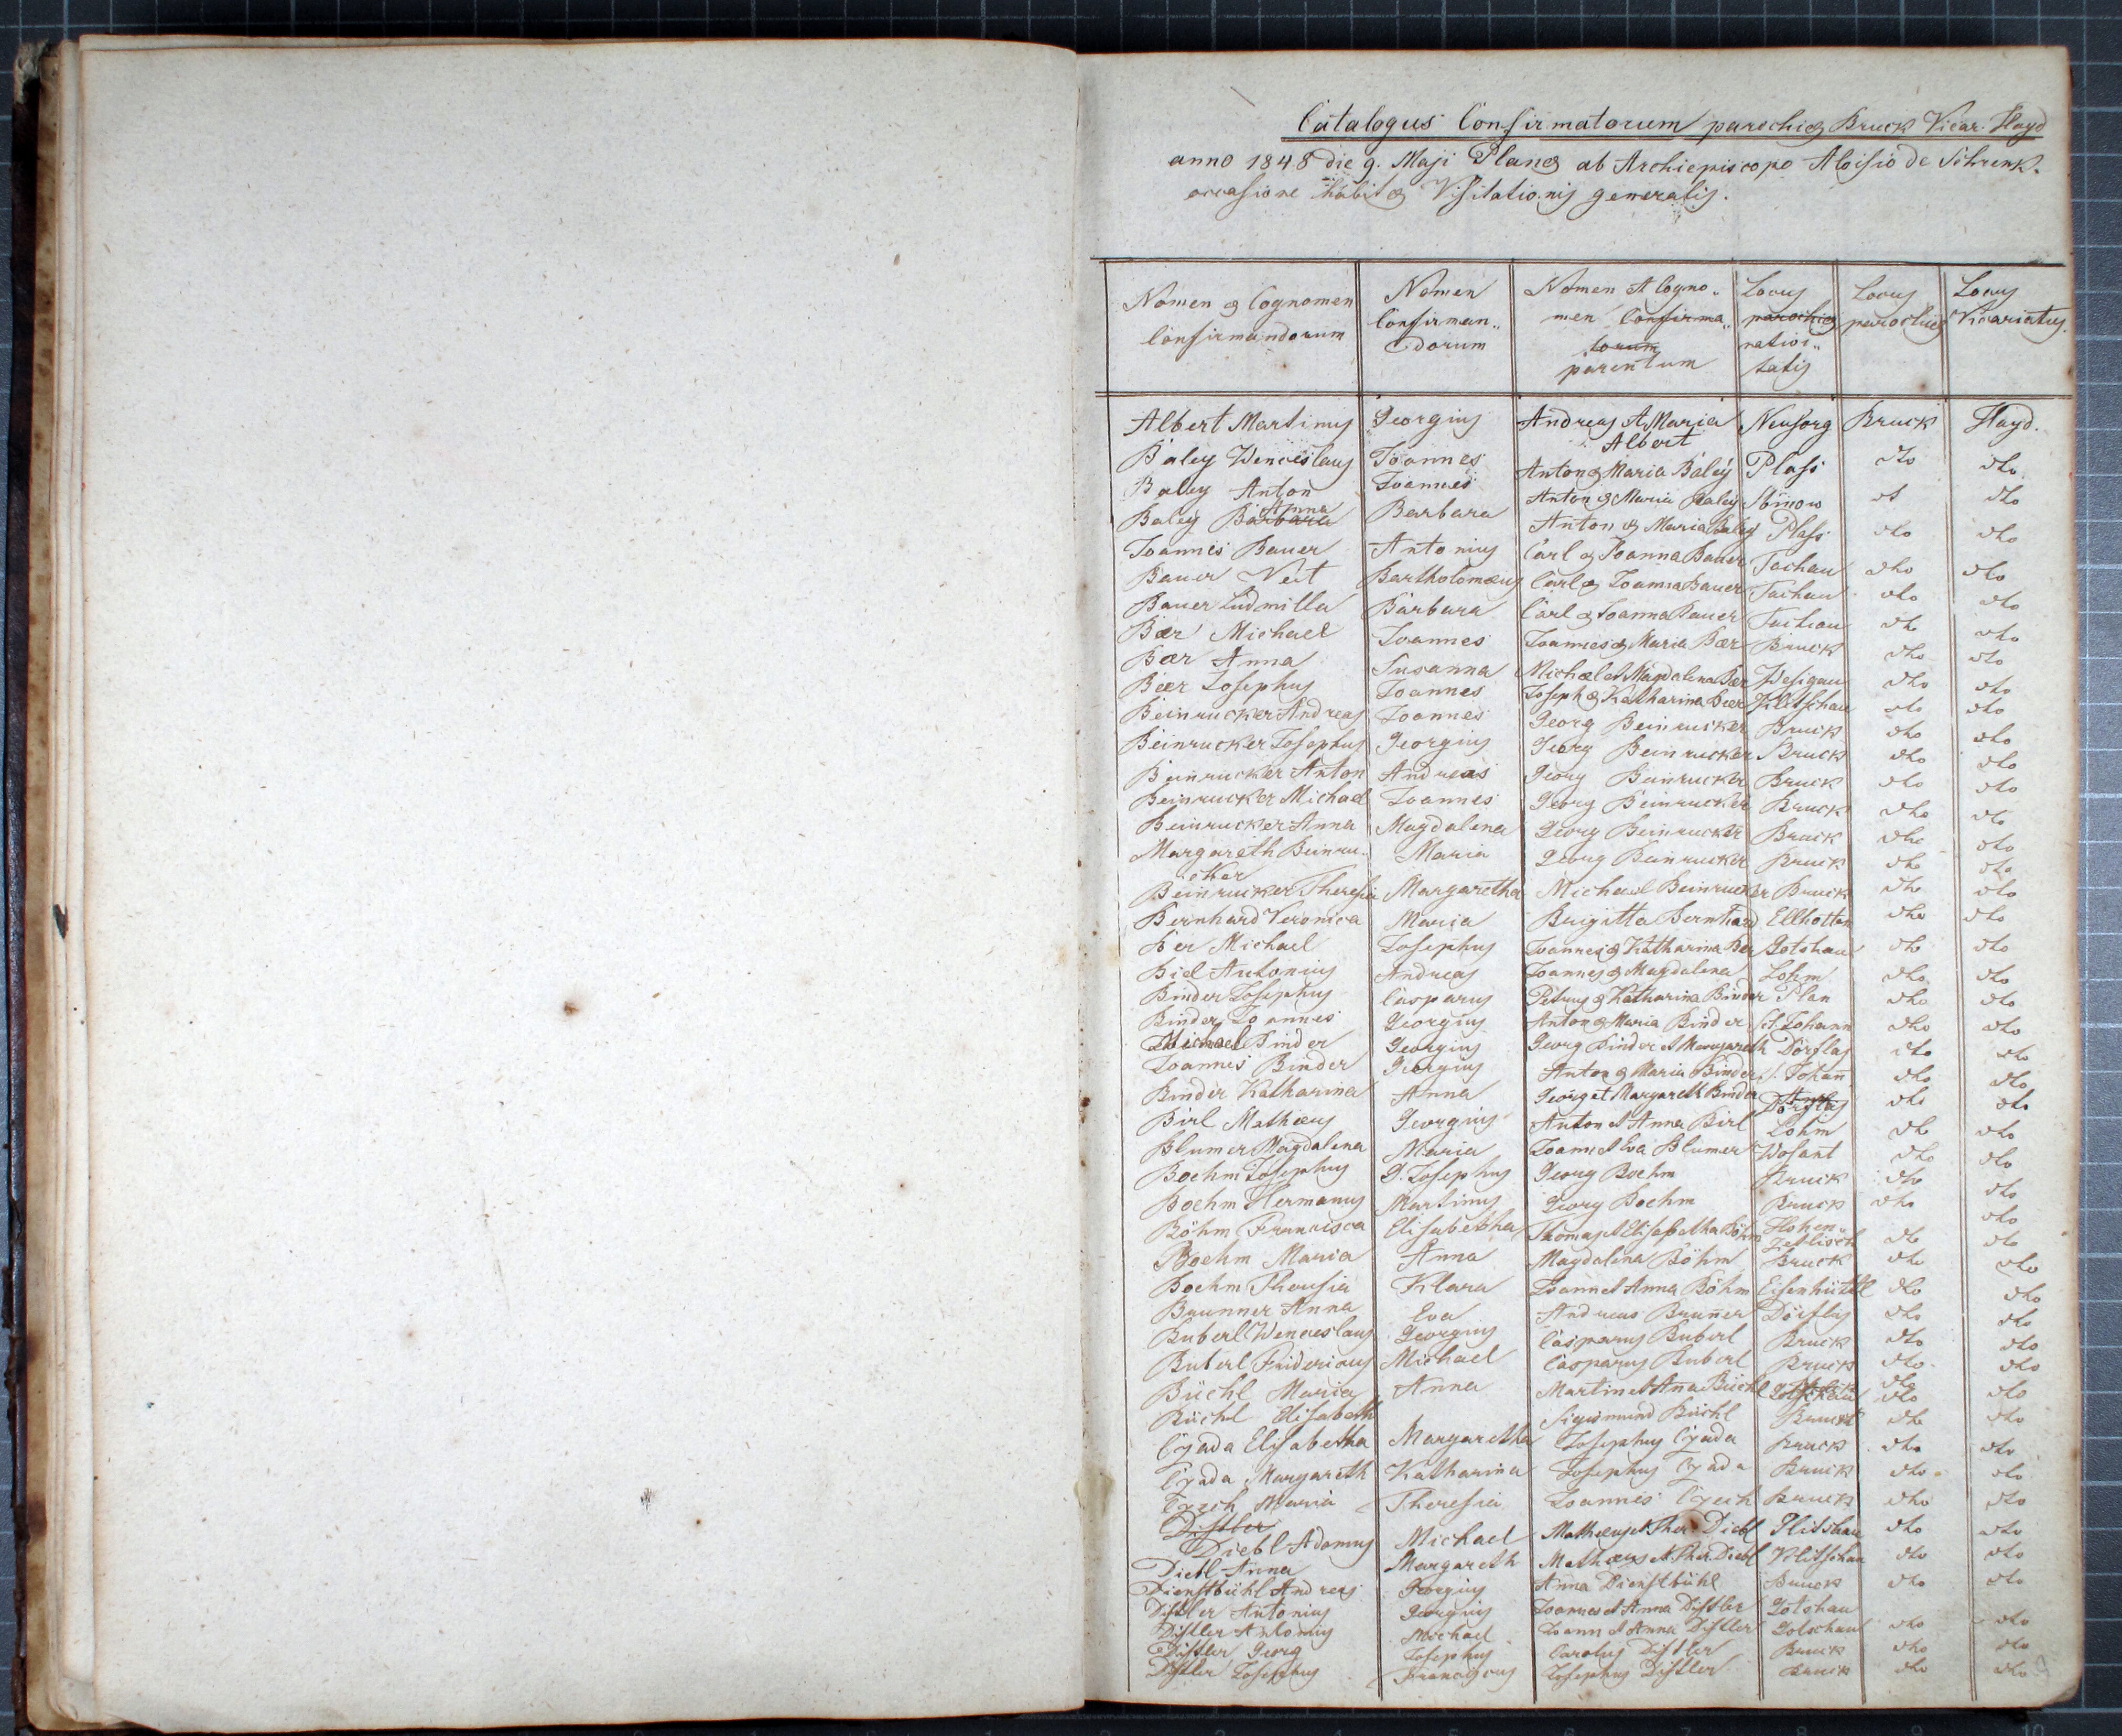 Catalogus Confirmatorum parochiæ Bruck Vicar. Hayd
anno 1848 die 9. Maji Planæ ab Archiepiscopo Aloisio de Schrenk.
occasione habitæ Visitationis generalis.
Nomen & Cognomen Confirmandorum | Nomen Confirman„dorum | Nomen et Cogno„men Confirma„torum parentum | Locus parochiæ nativi„tatis | Locus parochiæ | Locus Vicariatus.
Albert Martinus Georgius Andreas et Maria Albert Neusorg Bruck Hayd.
Baley Wenceslaus Joannes Anton & Maria Baley Plass dto dto
Baley Anton Joannes Anton & Maria Baley dt dto
Baley Barbara Anna Barbara Anton & Maria Baley Plass dto dto
Joannes Bauer Antonius Carl & Joanna Bauer Tachau dto dto
Bauer Veit Bartholomæus Carl & Joanna Bauer Tachau dto dto
Bauer Ludmilla Barbara Carl & Joanna Bauer Tachau dto dto
Bær Michael Joannes Joannes & Maria Bær Bruck dto dto
Bær Anna Susanna Michael et Magdalena Bær Wesigau dto dto
Beer Josephus Joannes Joseph & Katharina Beer Klitschau dto dto
Beinrucker Andreas Joannes Georg Beinrucker Bruck dto dto
Beinrucker Josephus Georgius Georg Beinrucker Bruck dto dto
Beinrucker Anton Andreas Georg Beinrucker Bruck dto dto
Beinrucker Michael Joannes Georg Beinrucker Bruck dto dto
Beinrucker Anna Magdalena Georg Beinrucker Bruck dto dto
Margareth Beinru„cker Maria Georg Beinrucker Bruck dto dto
Beinrucker Theresia Margaretha Michael Beinrucker Bruck dto dto
Bernhard Veronica Maria Brigitta Bernhard Ellhotten dto dto
Ber Michael Josephus Joannes & Katharina Ber Gotshau dto dto
Biel Antonius Andreas Joannes & Magdalena Lohm dto dto
Binder Josephus Casparus Petrus & Katharina Binder Plan dto dto
Binder Joannes Georgius Anton & Maria Binder St. Johann dto dto
Michael Binder Georgius Georg Binder et Margareth Dörflas dto dto
Joannes Binder Georgius Anton & Maria Binder S. Johan̄ dto dto
Binder Katharina Anna Georg et Margareth Binder Dörflas dto dto
Birl Mathæus Georgius Anton et Anna Birl Lohm dto dto
Blumer Magdalena Maria Joann et Eva Blumer Wosant dto dto
Boehm Josephus D. Josephus Georg Boehm Bruck dto dto
Boehm Hermanus Martinus Georg Boehm Bruck dto dto
Böhm Francisca Elisabetha Thomas et Elisabetha Böhm Hohen„Zetlisch dto dto
Boehm Maria Anna Magdalena Böhm Bruck dto dto
Boehm Theresia Klara Joann et Anna Böhm Eisenhüttl dto dto
Brunner Anna Eva Andreas Brun̄er Dörflas dto dto
Buberl Wenceslaus Georgius Casparus Buberl Bruck dto dto
Buberl Fridericus Michael Casparus Buberl Bruck dto dto
Büchl Maria Anna Martin et Ana Büchl Gotschau dto dto
Büchl Elisabeth Sigismund Büchl Bruck dto dto
Czada Elisabetha Margaretha Josephus Czada Bruck dto dto
Czada Margareth Katharina Josephus Czada Bruck dto dto
Czech Maria Theresia Joannes Czech Bruck dto dto
Distler
Diebl Adamus Michael Mathæus et Ther. Diebl Plitshau dto dto
Diebl Anna Margareth Mathæus et Ther. Diebl Klitschau dto dto
Dienstbühl Andreas Georgius Anna Dienstbühl Bruck dto dto
Distler Antonius Georgius Joannes et Anna Distler Gotshau
Distler Antonius Michael Joann et Anna Distler Gotschau dto dto
Distler Georg Josephus Carolus Distler Bruck dto dto
Distler Josephus Franciscus Josephus Distler Bruck dto dto